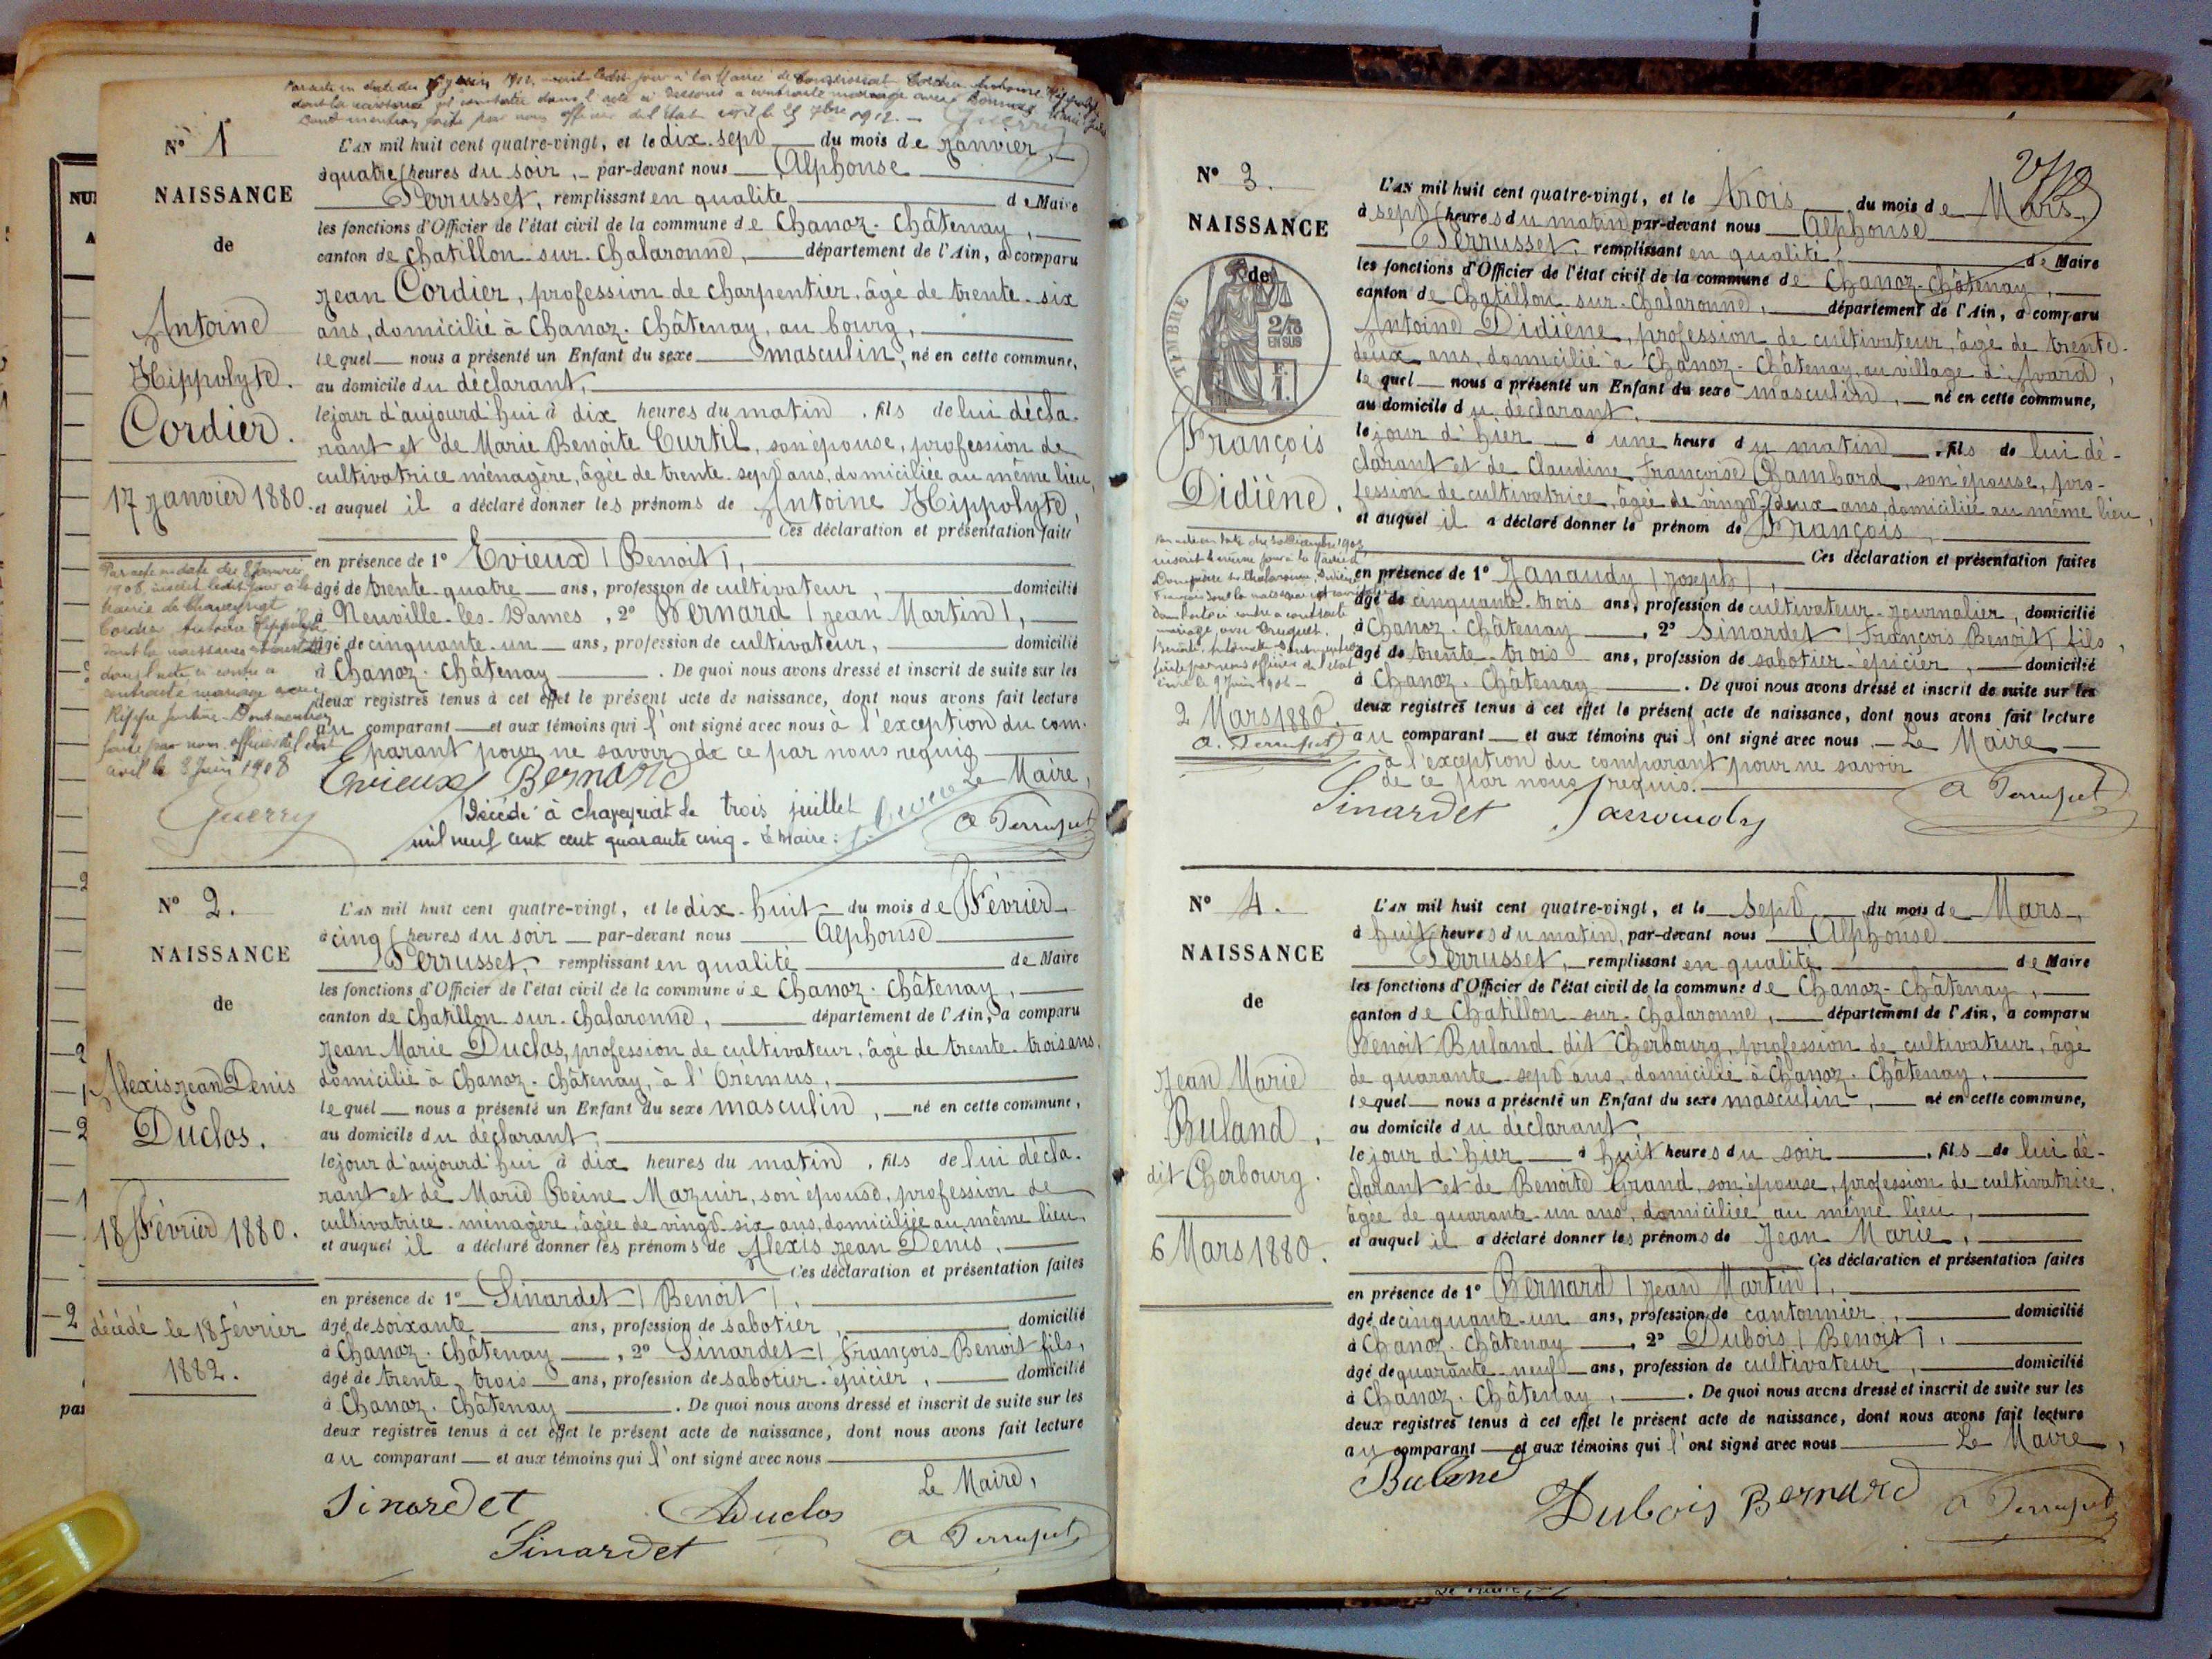 dont la naissance est constatée dans l'acte ci dessous a contracté mariage avec
dont mention faite par nous officier de l'état civil le 25 7bre 1912. —
Nº 1
NAISSANCE
de
Antoine
Hippolyte.
Cordier.
17 Janvier 1880.
Par acte en date du 8 Janvier
1908, inscrit ledit jour à la
mairie de Chaveyriat
Cordier Antoine Hippolyte
dont la naissance est constatée
dans l'acte ci contre a
contracté mariage avec
Dont mention
faite par nous officier de l'état
civil le 8 Juin 1908
Guerry
L'AN mil huit cent quatre-vingt, et le dix-sept du mois de Janvier,
à quatre heures du soir, par-devant nous Alphonse
Perrusset, remplissant en qualité de Maire
les fonctions d'Officier de l'état civil de la commune de Chanoz-Châtenay,
canton de Chatillon-sur-Chalaronne, département de l'Ain, a comparu
Jean Cordier, profession de charpentier, âgé de trente-six
ans, domicilié à Chanoz-Châtenay, au bourg,
lequel nous a présenté un Enfant du sexe masculin, né en cette commune,
au domicile du déclarant,
le jour d'aujourd'hui à dix heures du matin, fils de lui décla-
rant et de Marie Benoîte Curtil, son épouse, profession de
cultivatrice ménagère, âgée de trente-sept ans, domiciliée au même lieu,
et auquel il a déclaré donner les prénoms de Antoine Hippolyte,
Ces déclaration et présentation faites
en présence de 1º Evieux (Benoit),
âgé de trente-quatre ans, profession de cultivateur, domicilié
à Neuville-les-Dames, 2º Bernard (Jean Martin),
âgé de cinquante-un ans, profession de cultivateur, domicilié
à Chanoz-Châtenay. De quoi nous avons dressé et inscrit de suite sur les
deux registres tenus à cet effet le présent acte de naissance, dont nous avons fait lecture
au comparant et aux témoins qui l'ont signé avec nous à l'exception du com-
parant pour ne savoir de ce par nous requis
Evieux Bernard Le Maire,
Décédé à Chaveyriat le trois juillet
mil neuf cent cent quarante cinq. Le Maire: A Perrusset
Nº 2.
NAISSANCE
de
Alexis Jean Denis
Duclos.
18 Février 1880.
décédé le 18 février
1882.
L'AN mil huit cent quatre-vingt, et le dix-huit du mois de Février,
à cinq heures du soir par-devant nous Alphonse
Perrusset, remplissant en qualité de Maire
les fonctions d'Officier de l'état civil de la commune de Chanoz-Châtenay,
canton de Chatillon-sur-Chalaronne, département de l'Ain, a comparu
Jean Marie Duclos, profession de cultivateur, âgé de trente-trois ans,
domicilié à Chanoz-Châtenay, à l'Oremus,
lequel nous a présenté un Enfant du sexe masculin, né en cette commune,
au domicile du déclarant,
le jour d'aujourd'hui à dix heures du matin, fils de lui décla-
rant et de Marie Reine Mazuir, son épouse, profession de
cultivatrice-ménagère, âgée de vingt-six ans, domiciliée au même lieu,
et auquel il a déclaré donner les prénoms de Alexis Jean Denis,
Ces déclaration et présentation faites
en présence de 1º Sinardet (Benoit),
âgé de soixante ans, profession de sabotier, domicilié
à Chanoz-Châtenay, 2º Sinardet (François-Benoit fils,
âgé de trente-trois ans, profession de sabotier-épicier, domicilié
à Chanoz-Châtenay. De quoi nous avons dressé et inscrit de suite sur les
deux registres tenus à cet effet le présent acte de naissance, dont nous avons fait lecture
au comparant et aux témoins qui l'ont signé avec nous
Le Maire,
Sinardet Duclos
Sinardet A Perrusset
Nº 3.
NAISSANCE
de
TIMBRE
2/10
EN SUS
François
Didiène.
2 Mars 1880.
A. Perrusset
L'AN mil huit cent quatre-vingt, et le trois du mois de Mars,
à sept heures du matin par-devant nous Alphonse
Perrusset, remplissant en qualité de Maire
les fonctions d'Officier de l'état civil de la commune de Chanoz-Châtenay,
canton de Chatillon-sur-Chalaronne, département de l'Ain, a comparu
Antoine Didiène, profession de cultivateur, âgé de trente-
deux ans, domicilié à Chanoz-Châtenay, au village d'Avard,
lequel nous a présenté un Enfant du sexe masculin, né en cette commune,
au domicile du déclarant,
le jour d'hier à une heure du matin, fils de lui dé-
clarant et de Claudine Françoise Chambard, son épouse, pro-
fession de cultivatrice, âgée de vingt-deux ans, domiciliée au même lieu,
et auquel il a déclaré donner le prénom de François
Ces déclaration et présentation faites
en présence de 1º Janaudy (Joseph),
âgé de cinquante-trois ans, profession de cultivateur-journalier, domicilié
à Chanoz-Châtenay, 2º Sinardet (François Benoit) fils,
âgé de trente-trois ans, profession de sabotier-épicier, domicilié
à Chanoz-Châtenay. De quoi nous avons dressé et inscrit de suite sur les
deux registres tenus à cet effet le présent acte de naissance, dont nous avons fait lecture
au comparant et aux témoins qui l'ont signé avec nous. Le Maire
à l'exception du comparant pour ne savoir
de ce par nous requis.
Sinardet A Perrusset
Nº 4.
NAISSANCE
de
Jean Marie
Buland,
dit Cherbourg.
6 Mars 1880.
L'AN mil huit cent quatre-vingt, et le sept du mois de Mars,
à huit heures du matin, par-devant nous Alphonse
Perrusset, remplissant en qualité de Maire
les fonctions d'Officier de l'état civil de la commune de Chanoz-Châtenay,
canton de Chatillon-sur-Chalaronne, département de l'Ain, a comparu
Benoit Buland dit Cherbourg, profession de cultivateur, âgé
de quarante-sept ans, domicilié à Chanoz-Châtenay,
lequel nous a présenté un Enfant du sexe masculin, né en cette commune,
au domicile du déclarant
le jour d'hier à huit heures du soir, fils de lui dé-
clarant et de Benoîte Grand, son épouse, profession de cultivatrice,
âgée de quarante-un ans, domiciliée au même lieu,
et auquel il a déclaré donner les prénoms de Jean Marie,
Ces déclaration et présentation faites
en présence de 1º Bernard (Jean Martin),
âgé de cinquante-un ans, profession de cantonnier, domicilié
à Chanoz-Châtenay, 2º Dubois (Benoit),
âgé de quarante-neuf ans, profession de cultivateur, domicilié
à Chanoz-Châtenay. De quoi nous avons dressé et inscrit de suite sur les
deux registres tenus à cet effet le présent acte de naissance, dont nous avons fait lecture
au comparant et aux témoins qui l'ont signé avec nous Le Maire,
Buland
Dubois Bernard A Perrusset